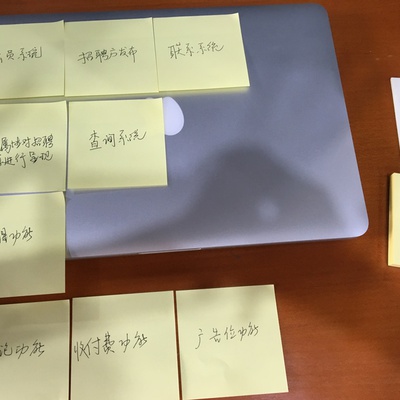 员系统
招聘启发布
联系系统
对招聘
进行呈现
查询系统
功能
功能
收付费功能
广告位功能